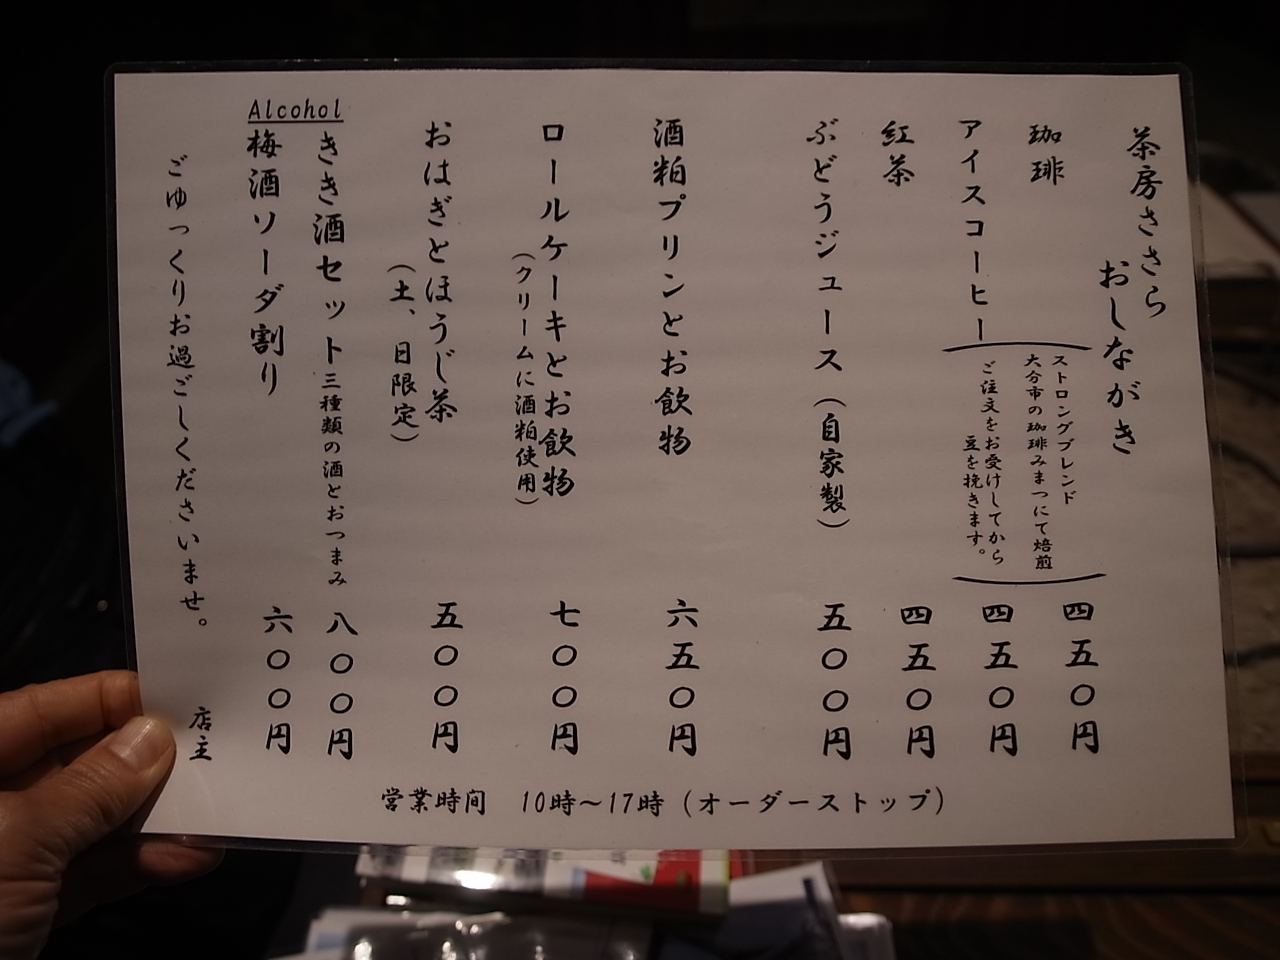 茶房ささら
おしながき
珈琲
四五〇円
アイスコーヒー
四五〇円
ストロングブレンド
大分市の珈琲みまつにて焙煎
ご注文をお受けしてから
豆を挽きます。
紅茶
四五〇円
ぶどうジュース（自家製）
五〇〇円
酒粕プリンとお飲物
六五〇円
ロールケーキとお飲物
七〇〇円
（クリームに酒粕使用）
おはぎとほうじ茶
五〇〇円
（土、日限定）
Alcohol
きき酒セット三種類の酒とおつまみ
八〇〇円
梅酒ソーダ割り
六〇〇円
ごゆっくりお過ごしくださいませ。
店主
営業時間 10時～17時（オーダーストップ）